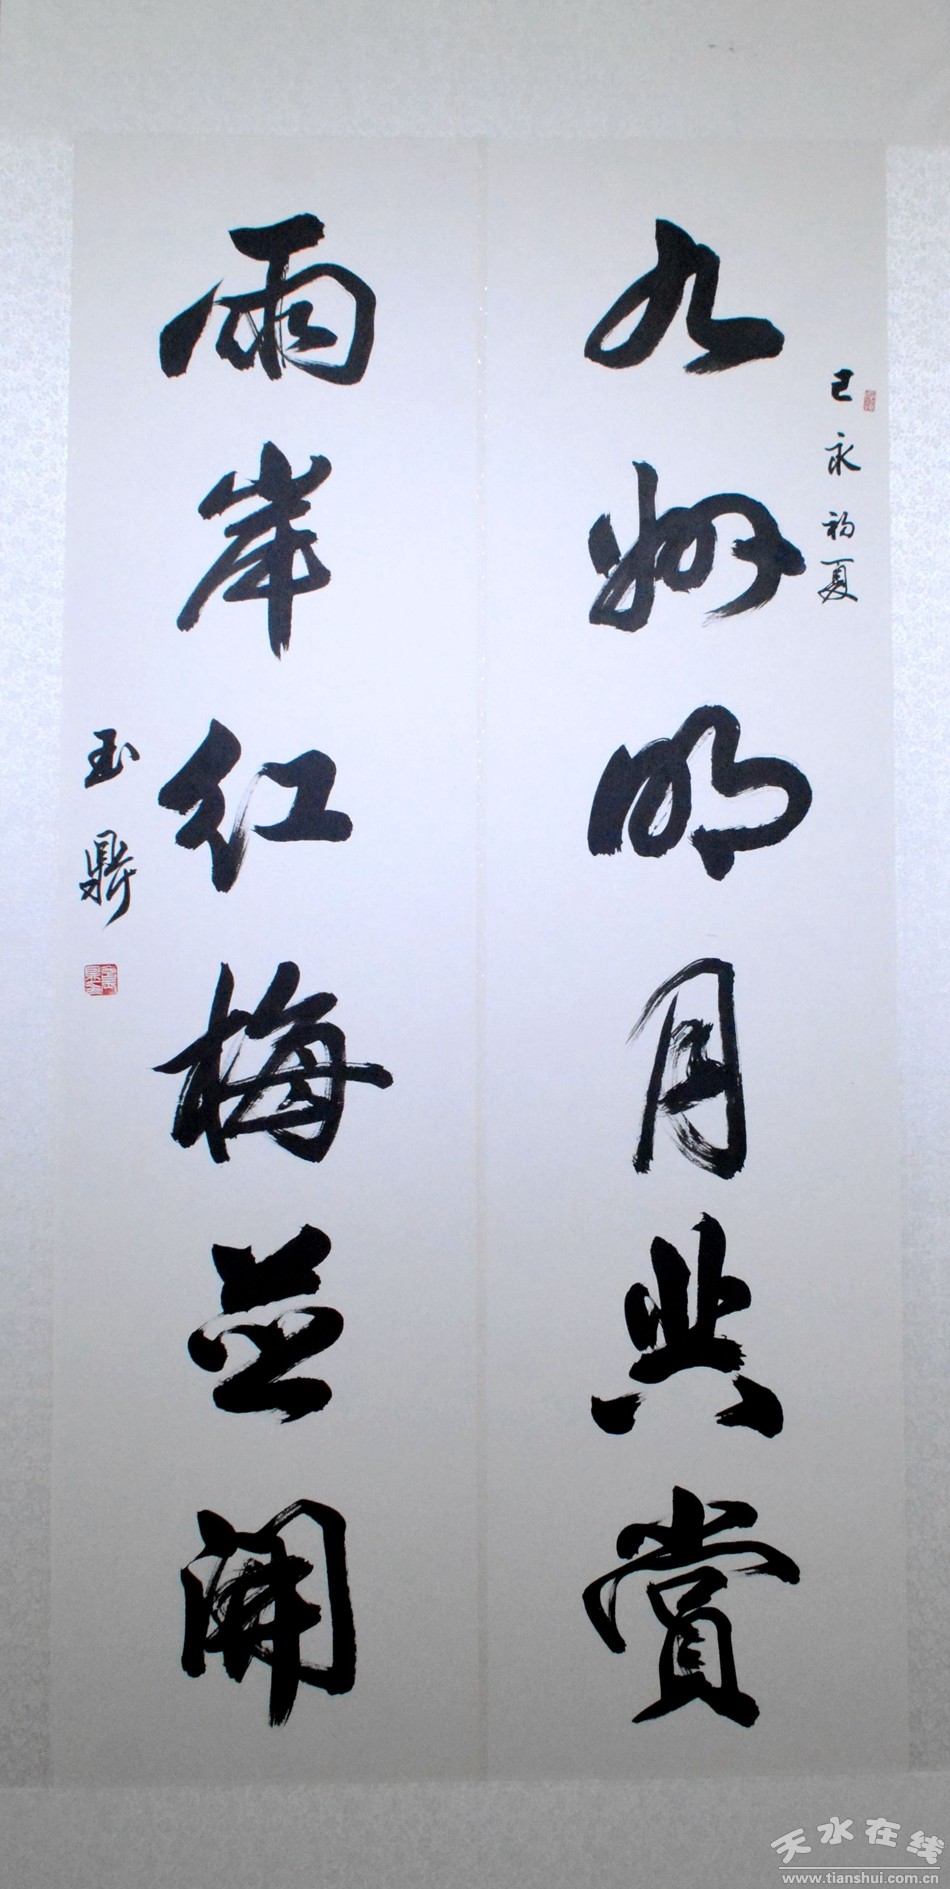 己初夏
九州明月共賞
兩岸红梅並開
玉鼎
天水在线
www.tianshui.com.cn